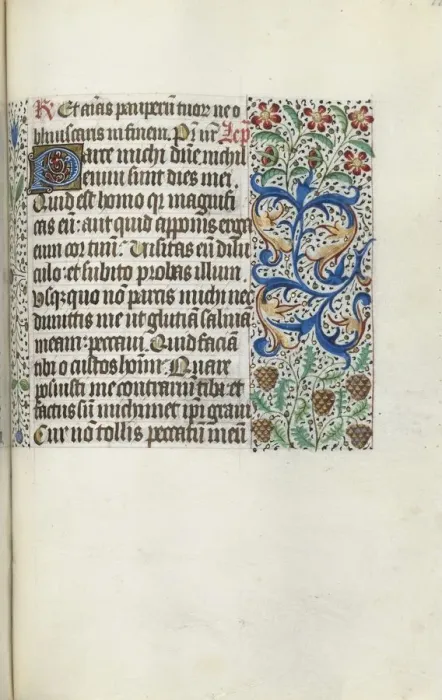 R Et aīas pauperū tuoꝝ ne o
bliuiscaris in finem. Pr̄ nr̄ Lcō
Parce michi dn̄e nichil
enim sunt dies mei.
Quid est homo qꝛ magnifi
cas eū: aut quid apponis erga
eum cor tuū: Uisitas eū dilu
culo: et subito probas illum
Usqꝫquo nō parcis michi nec
dimittis me ut glutiā saliuā
meam: peccaui. Quid faciā
tibi o custos hoīm: Quare
posuisti me contrariū tibi: et
factus sū michimet ipī grauis
Cur nō tollis peccatū meū